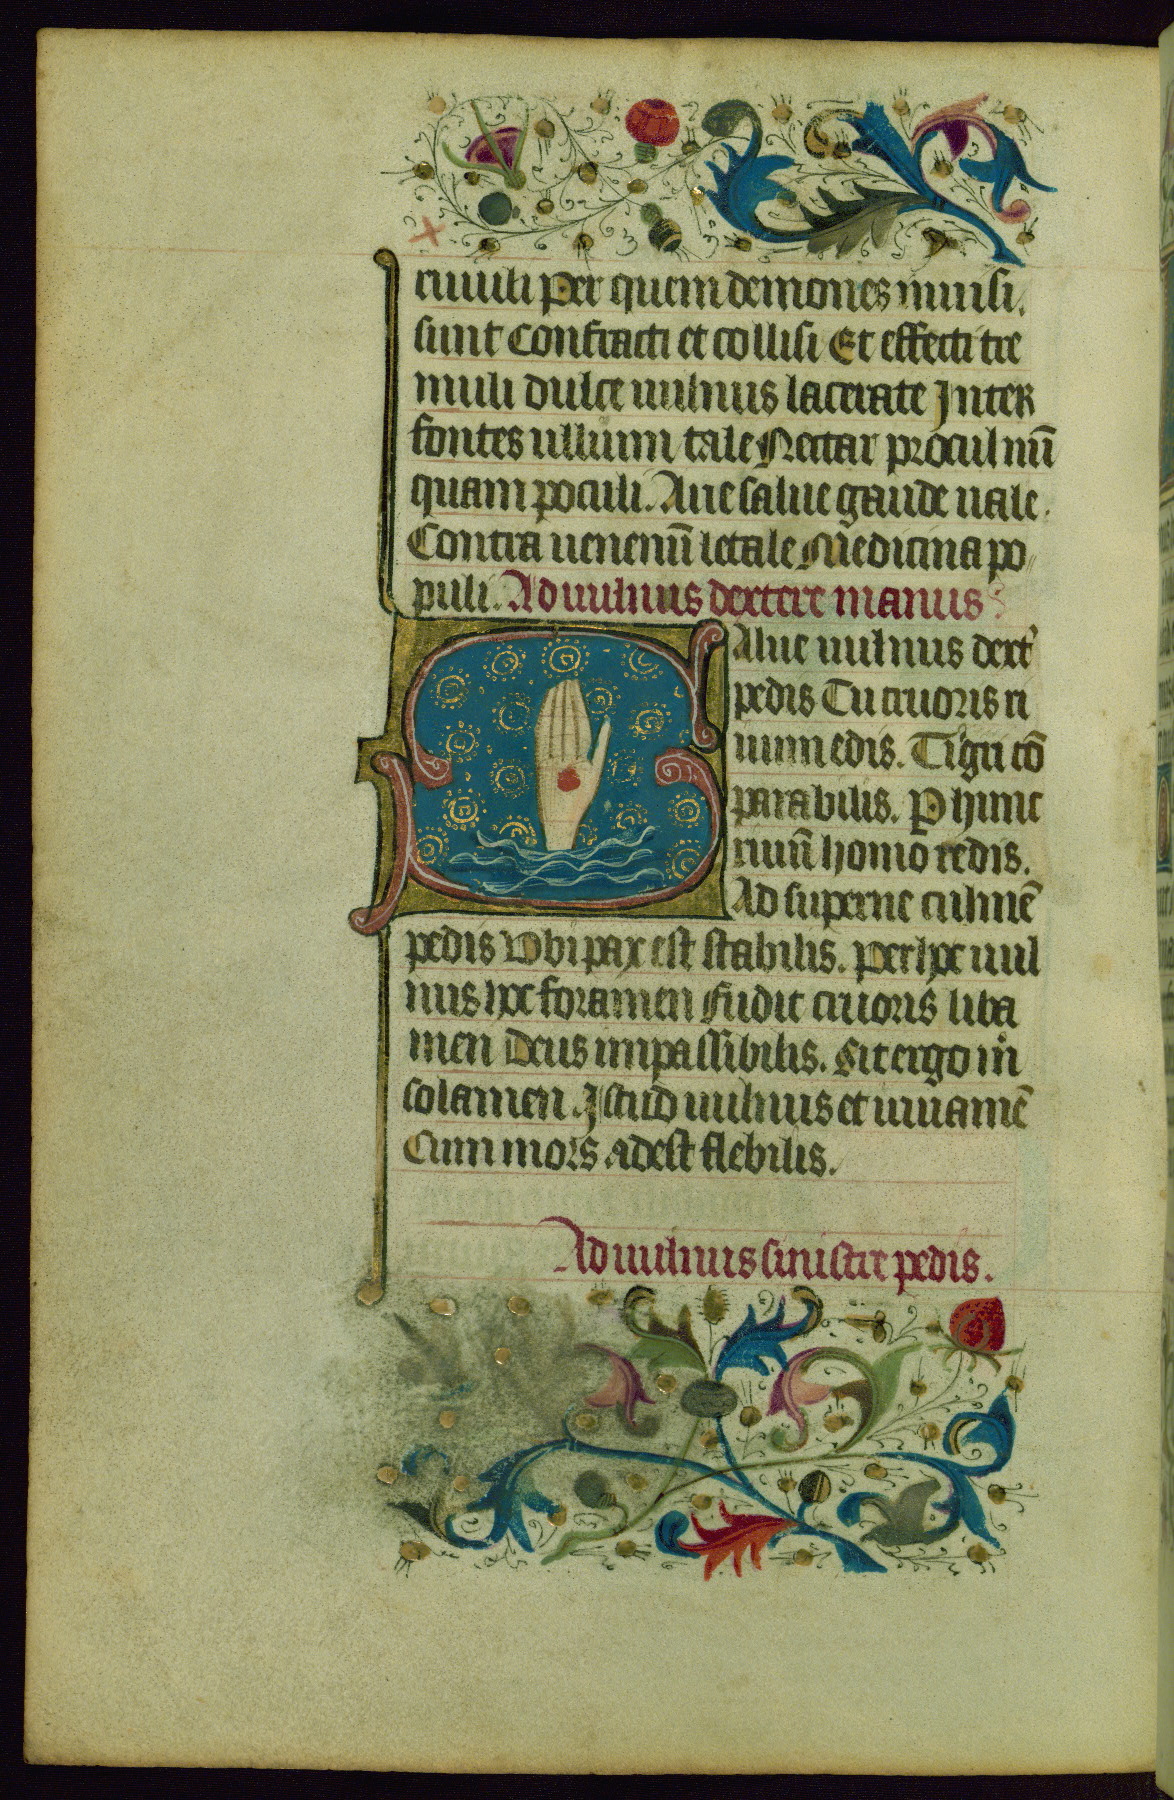 riuuli Per quem demones inuisi.
sunt Confracti et collisi Et effecti tre
muli dulce uulnus lacerate Inter
fontes ullum tale Nectar procul nū
quam poculi. Aue salue gaude uale.
Contra uenenū letale Medicina po
puli. Ad uulnus dextere manus
Alue uulnus dext
pedis Tu cruoris ri
uum edis. Tigri cō
parabilis. P hunc
riuū homo redis.
Ad superne culmē
pedis Vbi pax est stabilis. Per hoc uul
nus hoc foramen Fudit cruoris liba
men Deus impassibilis. Sit ergo in
solamen. Istud uulnus et iuuamē
Cum mors adest flebilis.
Ad uulnus sinistre pedis.